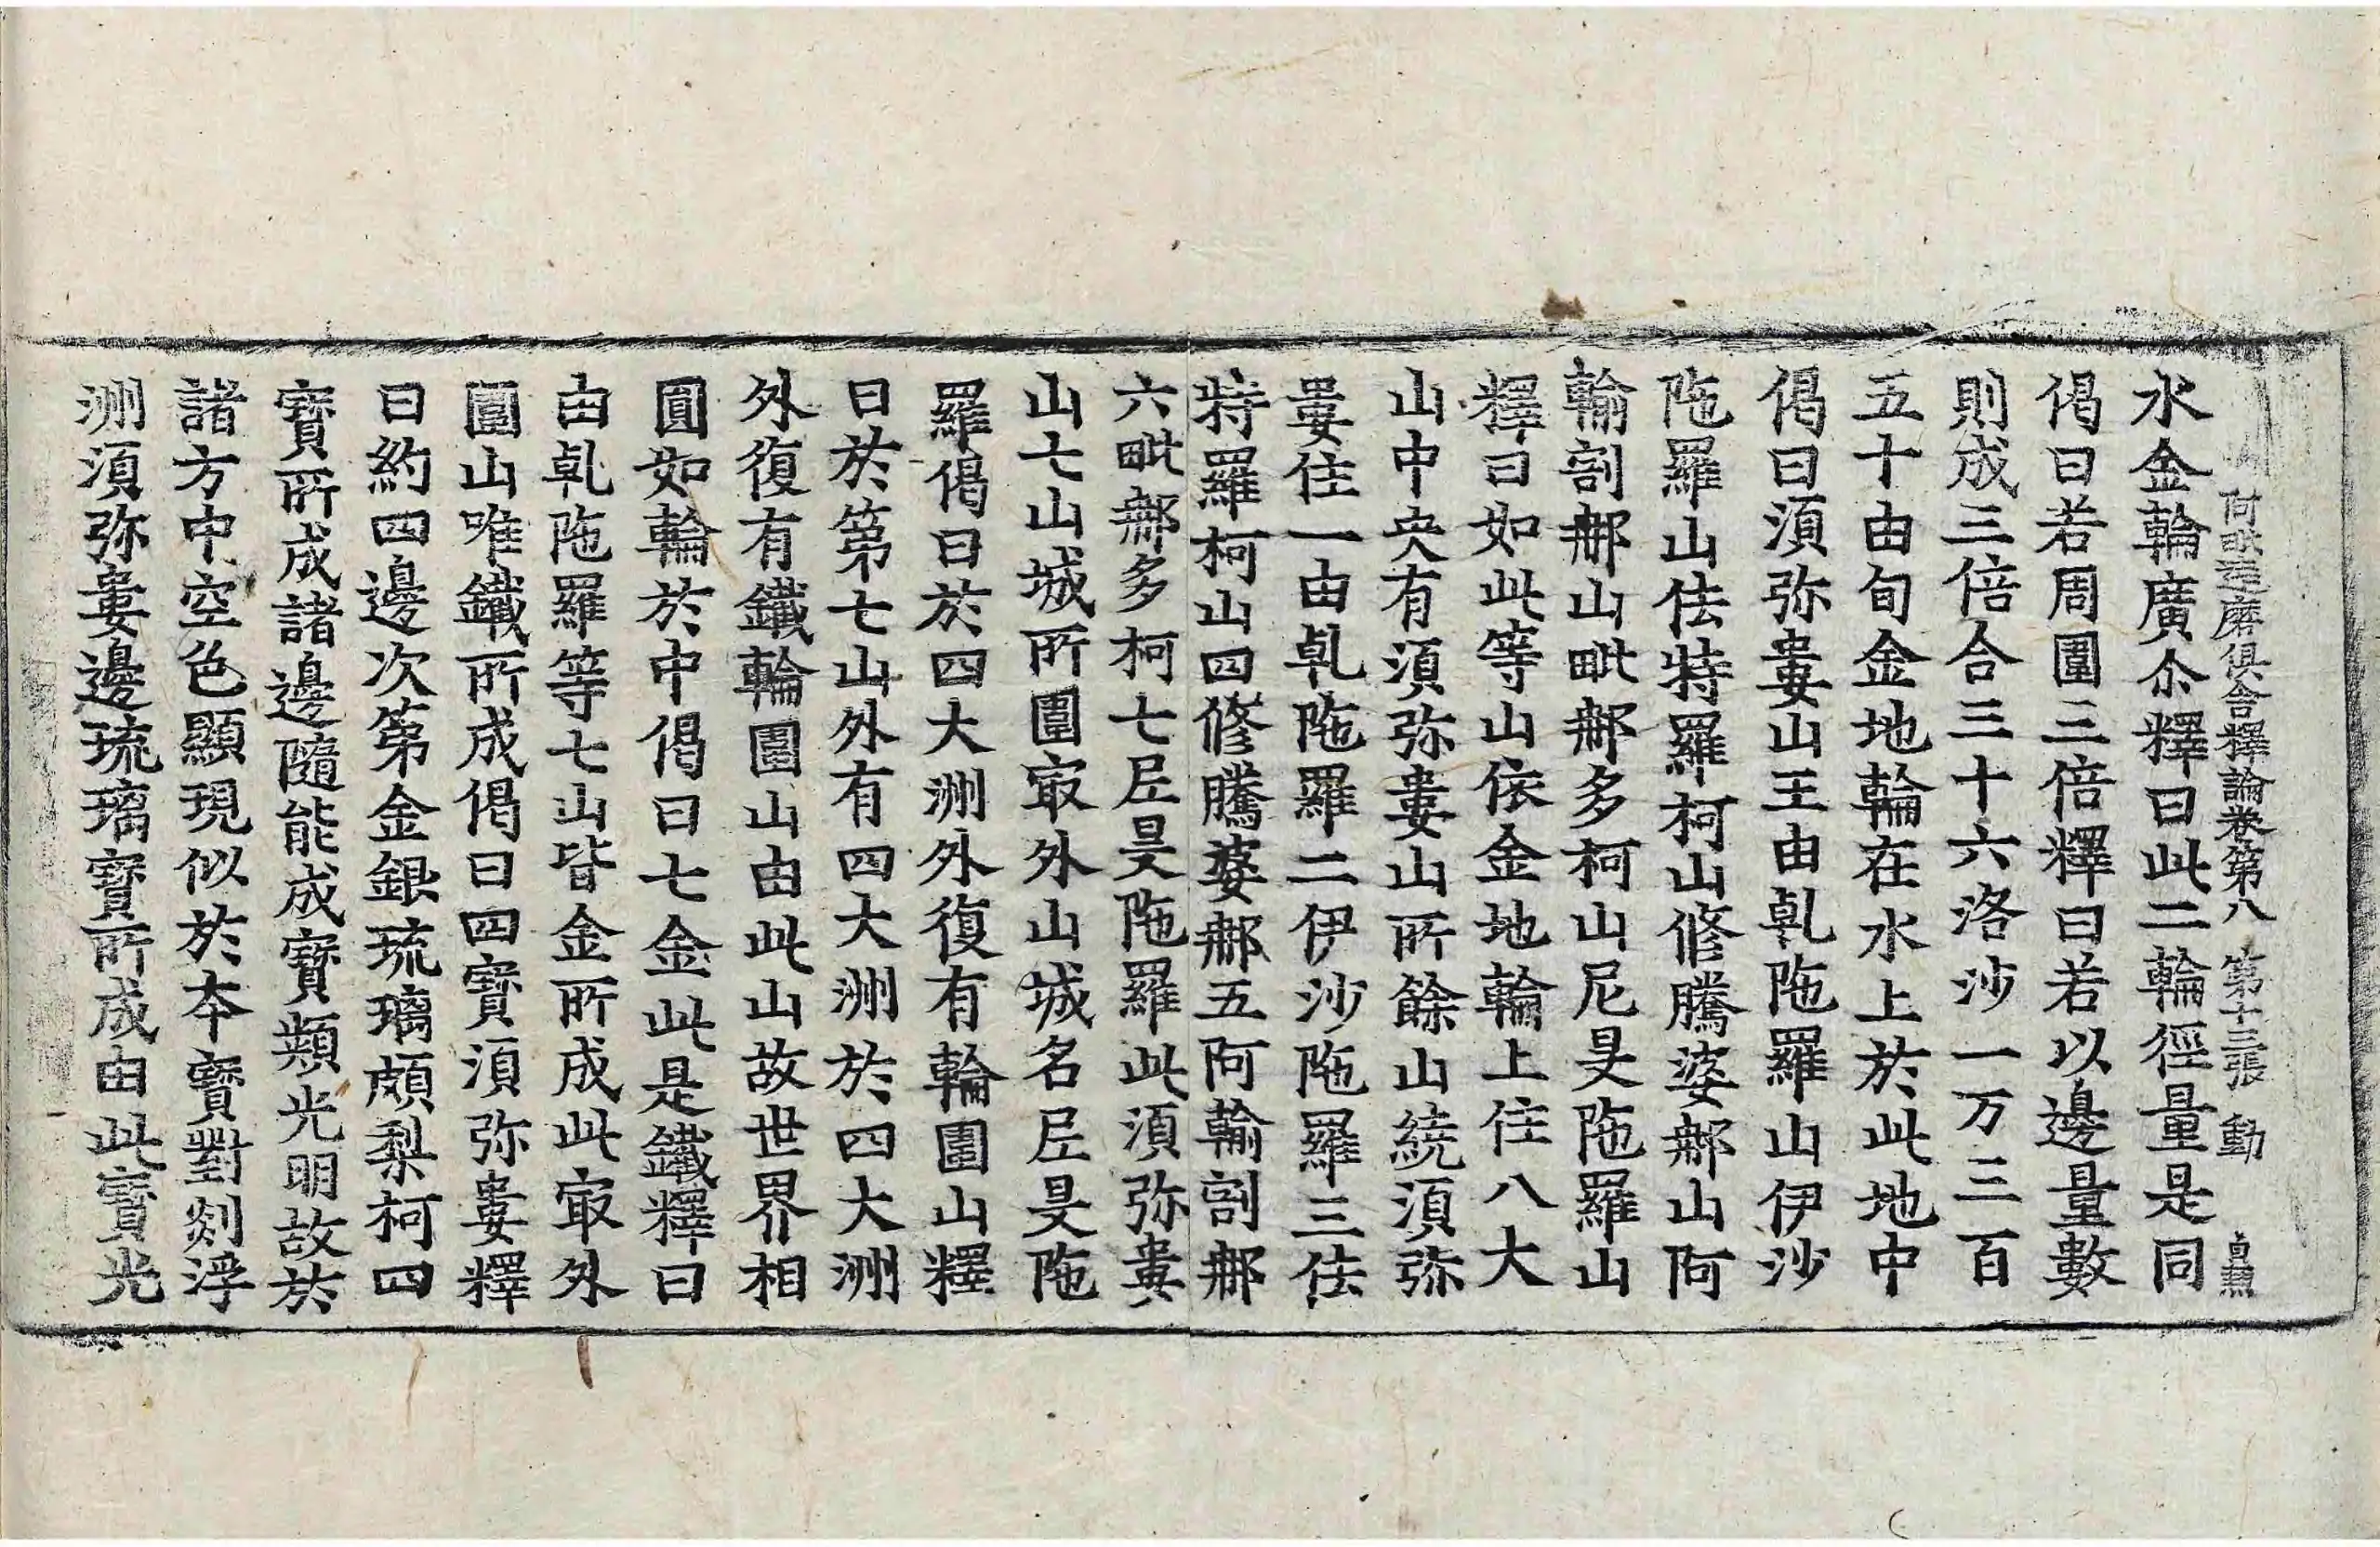 阿毗達磨俱舍釋論卷第八 第十三張 動
水金輪廣尒釋曰此二輪徑量是同
偈曰若周圍三倍釋曰若以邊量數
則成三倍合三十六洛沙一万三百
五十由旬金地輪在水上於此地中
偈曰湏弥婁山王由乹陁羅山伊沙
陁羅山佉特羅柯山修騰婆郍山阿
輸割郍山毗郍多柯山尼旻陁羅山
釋曰如此等山依金地輪上住八大
山中央有湏弥婁山所餘山繞湏弥
婁住一由乹陁羅二伊沙陁羅三佉
特羅柯山四修騰婆郍五阿輸割郍
六毗郍多柯七𡰱旻陁羅此湏弥婁
山七山城所圍㝡外山城名𡰱旻陁
羅偈曰於四大洲外復有輪圍山釋
曰於第七山外有四大洲於四大洲
外復有鐵輪圍山由此山故世界相
圓如輪於中偈曰七金此是鐵釋曰
由乹陁羅等七山皆金所成此㝡外
圍山唯鐵所成偈曰四寳湏弥婁釋
曰約四邊次第金銀琉璃頗梨柯四
寳所成諸邊隨能成寳類光明故於
諸方中空色顯現似於本寳對剡浮
洲湏弥婁邊琉璃寳所成由此寳光